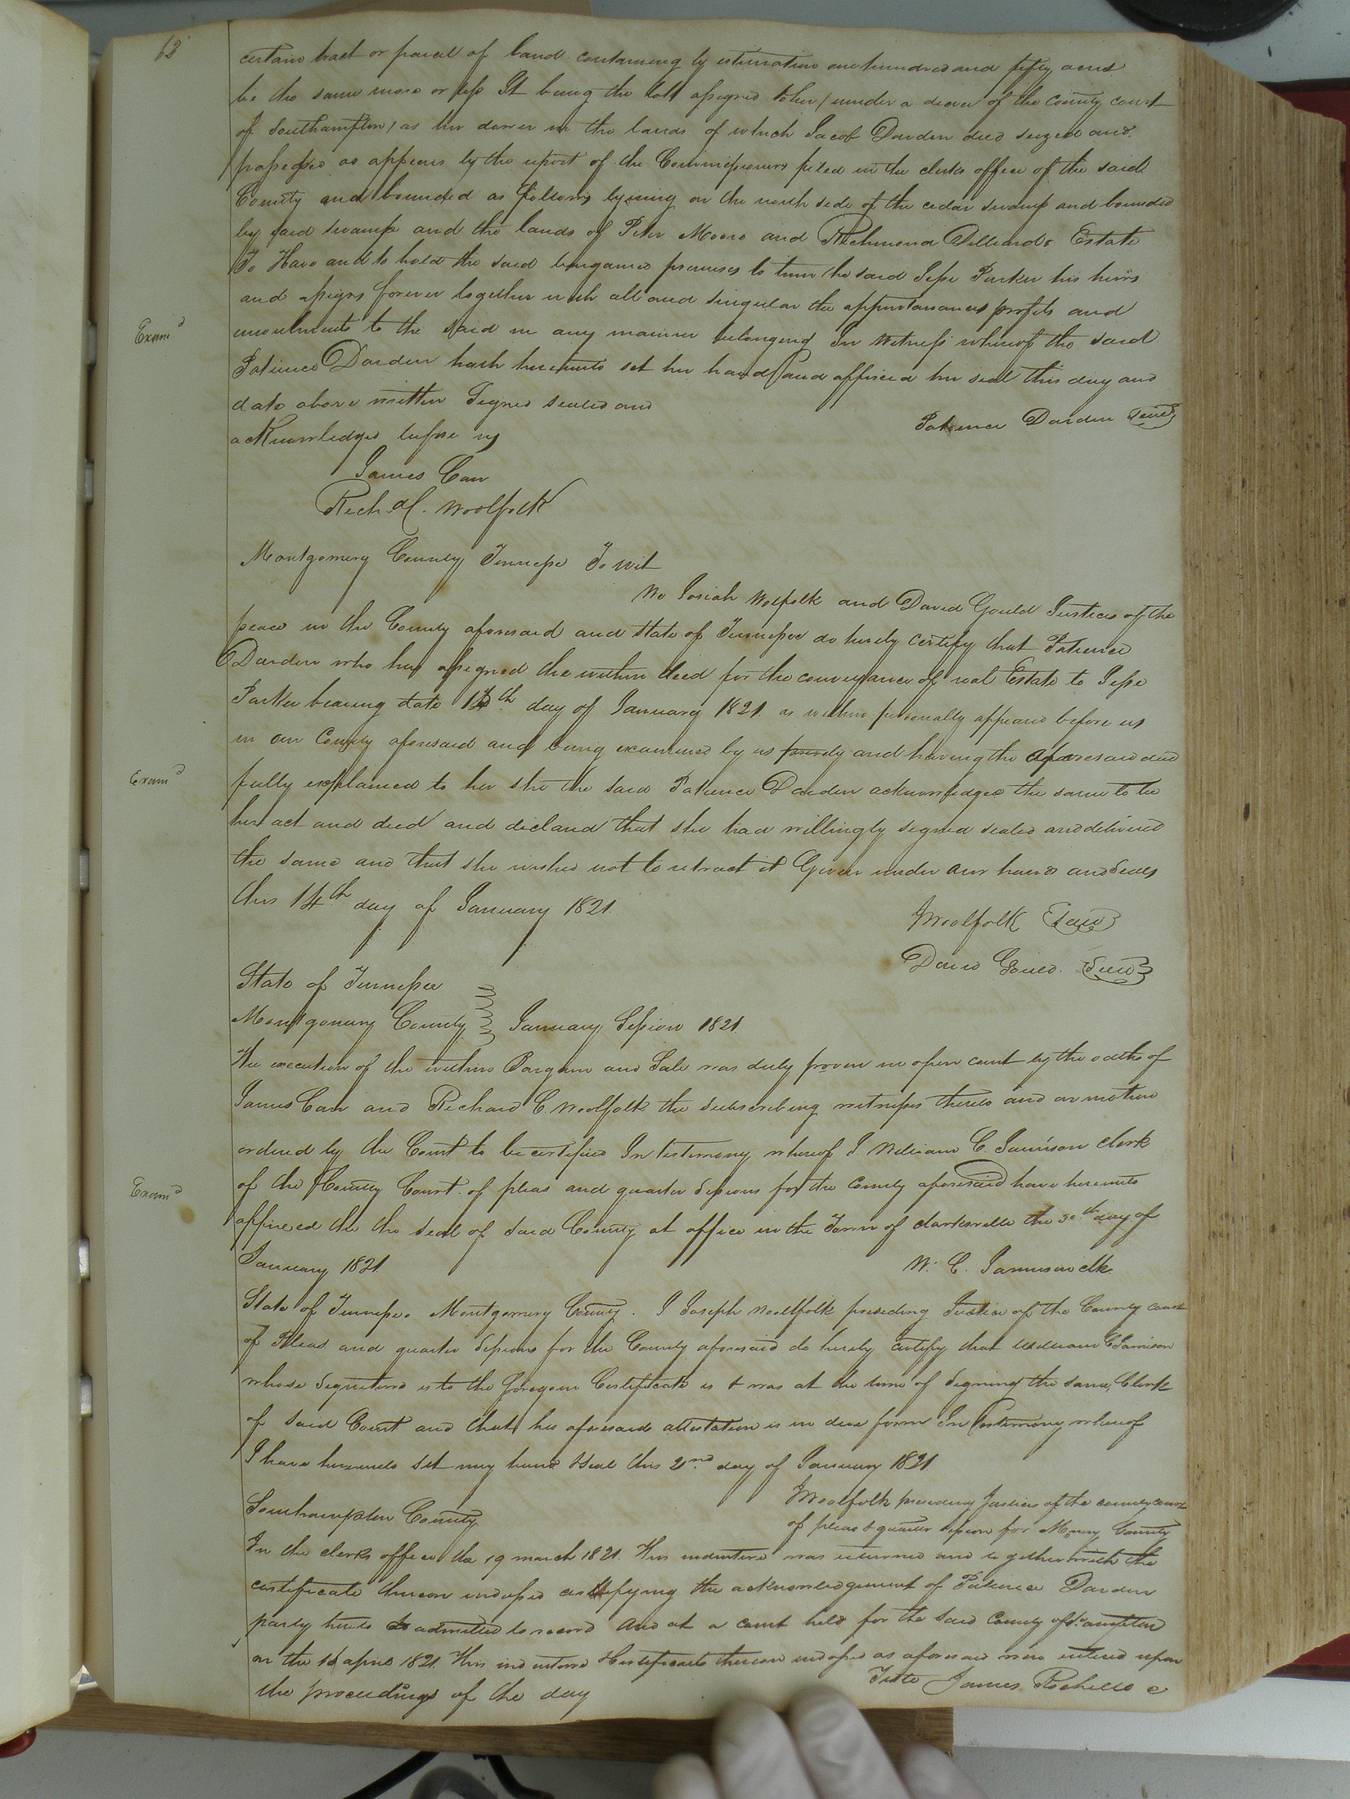 62
certain tract or parcel of land containing by estimation one hundred and fifty acres
be the same more or less It being the lott assigned to her (under a decree of the county court
of Southampton) as her dower in the lands of which Jacob Darden died seized and
possessed as appears by the report of the Commissioners filed in the clerks office of the said
County and bounded as follows lying on the north side of the cedar swamp and bounded
by said swamp and the lands of Peter Moore and Richmond Dilliards Estate
To Have and to hold the said bargained premises to him the said Jesse Parker his heirs
and assigns forever together with all and singular the appurtanances profits and
emoluments to the said in any manner belonging In Witness whereof the said
Exam'd
Patience Darden hath hereunto set her hand and affixed her seal this day and
date above written Signed sealed and
Patience Darden Seal
acknowledged before us
James Carr
Rich'd C. Woolfolk
Montgomery County Tennessee To wit
We Josiah Wolfolk and David Gould Justices of the
peace in the County aforesaid and State of Tennessee do hereby certify that Patience
Darden who has assigned the within deed for the conveyance of real Estate to Jesse
Parker bearing date th day of January 1821 as within personally appeared before us
in our County aforesaid and being examined by us and having the aforesaid deed
Exam'd
fully explained to her she the said Patience Darden acknowledged the same to be
her act and deed and declared that she had willingly signed sealed and delivered
the same and that she wished not to retract it Given under our hands and Seals
this 14th day of January 1821
JWoolfolk Seal
David Gould. Seal
State of Tennessee
Montgomery County January Session 1821
The execution of the within Bargain and Sale was duly proven in open court by the oaths of
James Carr and Richard C Woolfolk the subscribing witnesses thereto and on motion
ordered by the Court to be certified In testimony whereof I William C. Jamison clerk
Exam'd
of the County Court of pleas and quarter Sessions for the County aforesaid have hereunto
affixed the the seal of said County at office in the Town of clarksville the 30th day of
January 1821
W. C. Jamison clk
State of Tennessee Montgomery County. I Joseph Woolfolk presiding Justice of the County court
of Pleas and quarter Sessions for the County aforesaid do hereby certify that William C Jamison
whose signature is to the foregoin Certificate is & was at the time of signing the same, Clerk
of said Court and that his aforesaid attestation is in due form In testimony whereof
I have hereunto set my hand & seal this 2nd day of January 1821
JWoolfolk presiding Justice of the county court
of pleas & quarter session for County
Southampton County
In the clerks office the 19 march 1821. This indenture was returned and together with the
certificate thereon indorsed certifying the acknowledgement of Patience Darden
party hereto admitted to record And at a court held for the said County of Sthampton
on the april 1821 This indenture & Certificate thereon indorsed as aforesaid were entered upon
the proceedings of the day
Teste James Rochelle c